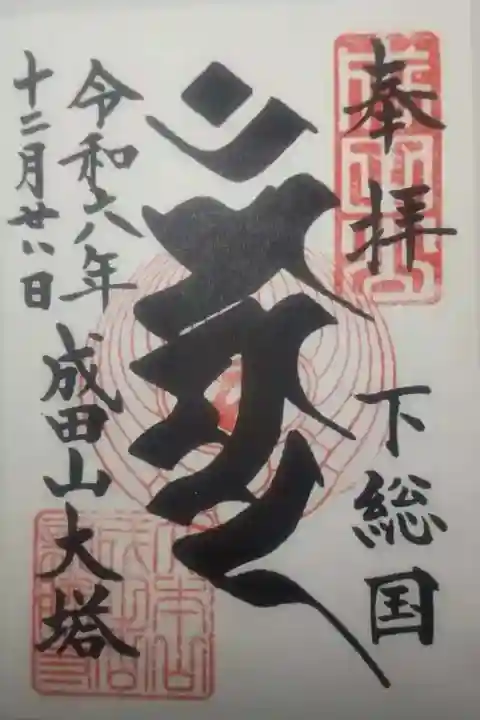 奉拝
下総国
令和六年
十二月廿八日
成田山大塔